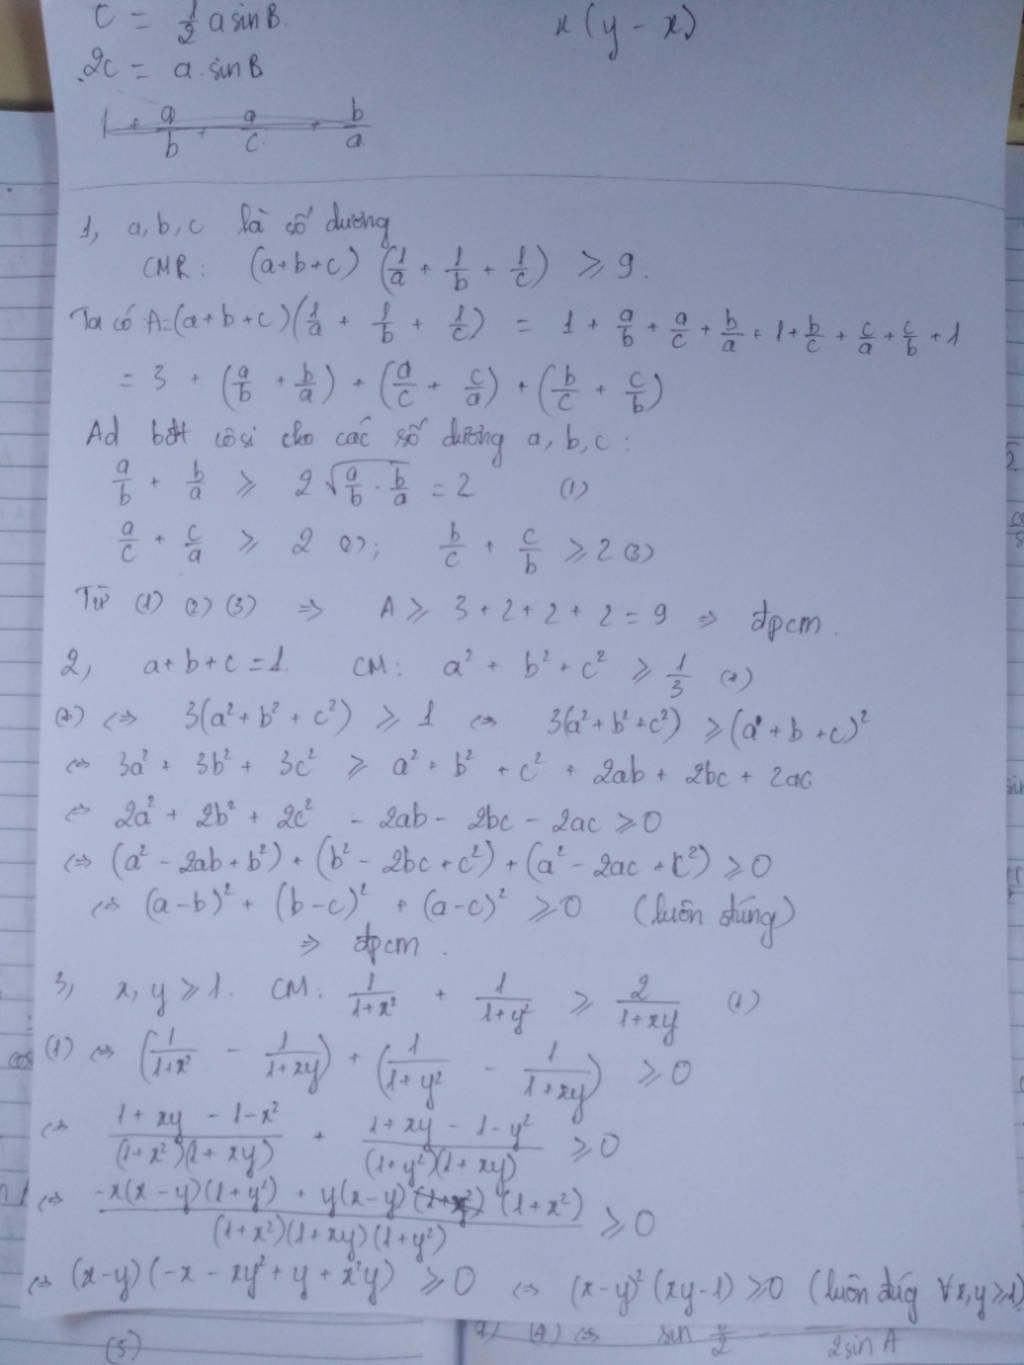 c = 1/2 a sin B.
x(y - x)
2c = a.sin B
1 + a/b + a/c + b/a
1, a, b, c là số dương
CMR: (a+b+c) (1/a + 1/b + 1/c) ≥ 9.
Ta có A=(a+b+c)(1/a + 1/b + 1/c) = 1 + a/b + a/c + b/a + 1 + b/c + c/a + c/b + 1
= 3 + (a/b + b/a) + (a/c + c/a) + (b/c + c/b)
Ad bđt côsi cho các số dương a, b, c:
a/b + b/a ≥ 2√(a/b . b/a) = 2 (1)
a/c + c/a ≥ 2 (2); b/c + c/b ≥ 2 (3)
Từ (1) (2) (3) => A ≥ 3 + 2 + 2 + 2 = 9 => đpcm.
2, a+b+c = 1. CM: a² + b² + c² ≥ 1/3 (*)
(*) <=> 3(a² + b² + c²) ≥ 1 <=> 3(a² + b² + c²) ≥ (a + b + c)²
<=> 3a² + 3b² + 3c² ≥ a² + b² + c² + 2ab + 2bc + 2ac
<=> 2a² + 2b² + 2c² - 2ab - 2bc - 2ac ≥ 0
<=> (a² - 2ab + b²) + (b² - 2bc + c²) + (a² - 2ac + c²) ≥ 0
<=> (a-b)² + (b-c)² + (a-c)² ≥ 0 (luôn đúng)
=> đpcm.
3, x, y ≥ 1. CM: 1/(1+x²) + 1/(1+y²) ≥ 2/(1+xy) (1)
(1) <=> (1/(1+x²) - 1/(1+xy)) + (1/(1+y²) - 1/(1+xy)) ≥ 0
<=> (1 + xy - 1 - x²)/((1+x²)(1+xy)) + (1 + xy - 1 - y²)/((1+y²)(1+xy)) ≥ 0
<=> (-x(x-y)(1+y²) + y(x-y)(1+x²))/((1+x²)(1+xy)(1+y²)) ≥ 0
<=> (x-y)(-x - xy² + y + x²y) ≥ 0 <=> (x-y)²(xy-1) ≥ 0 (luôn đúg ∀x,y ≥ 1)
(5)
2 sin A